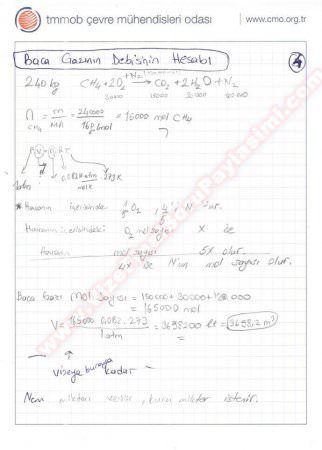 tmmob çevre mühendisleri odası www.cmo.org.tr
Baca Gazının Debisinin Hesabı
4
240 kg CH4 + 2O2 → CO2 + 2H2O + N2
15000
n CH4 = m/MA = 240000/16 g/mol = 15000 mol CH4
1 atm 0,082 273 K
* Havanın içerisinde 1/5 O2, 4/5 N2 'dur.
Havanın içerisindeki O2 mol sayısı X ise
Havanın mol sayısı 5X olur.
4X ise N'nin mol sayısı olur.
Baca Gazı Mol Sayısı =
= 165000 mol
V = 165000 . 0,082 . 273 / 1 atm = 3698200 lt = 3698,2 m³
vizeye buraya kadar
Nem miktarı verilir, kuru miktar istenir.